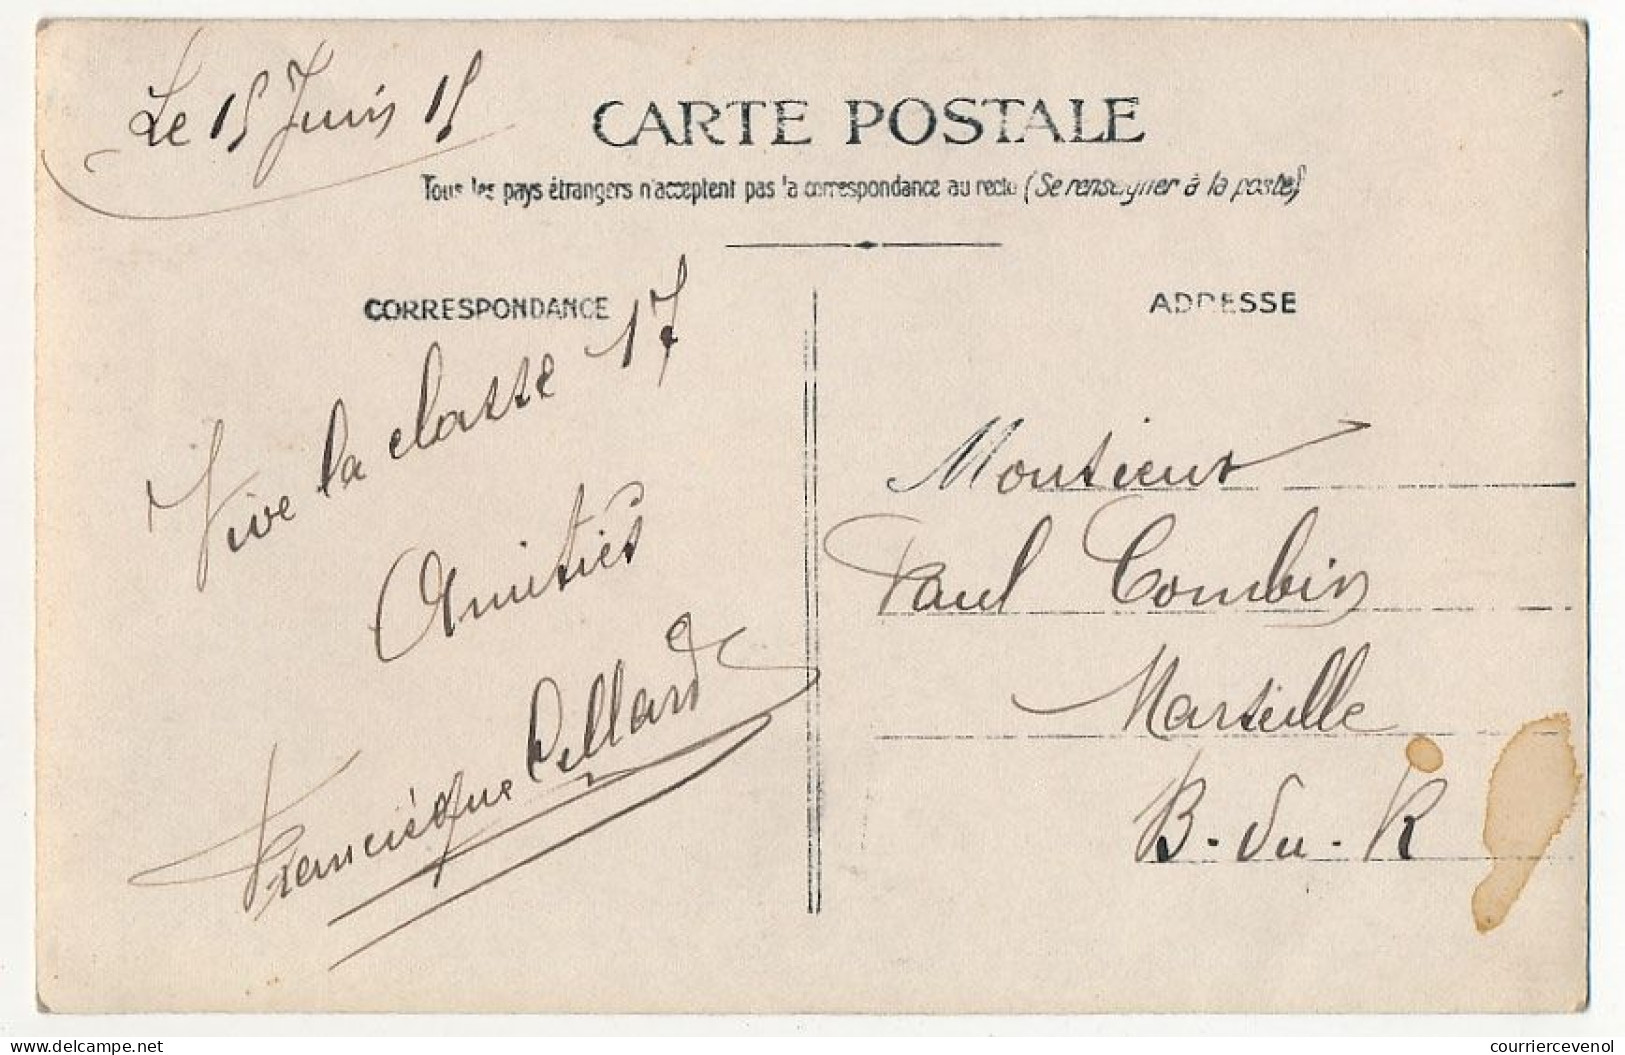 Le 15 Juin 15
CARTE POSTALE
Tous les pays étrangers n'acceptent pas la correspondance au recto (Se renseigner à la poste)
CORRESPONDANCE
Vive la classe 17
Amitiés
Francisque
ADRESSE
Monsieur
Paul Combin
Marseille
B-du-R
www.delcampe.net
courriercevenol